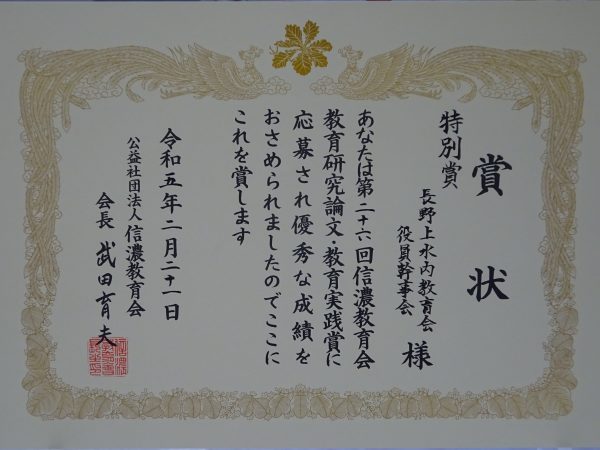 賞状
特別賞
長野上水内教育会
役員幹事会
様
あなたは第二十六回信濃教育会
教育研究論文・教育実践賞に
応募され優秀な成績を
おさめられましたのでここに
これを賞します
令和五年二月二十一日
公益社団法人信濃教育会
会長 武田育夫